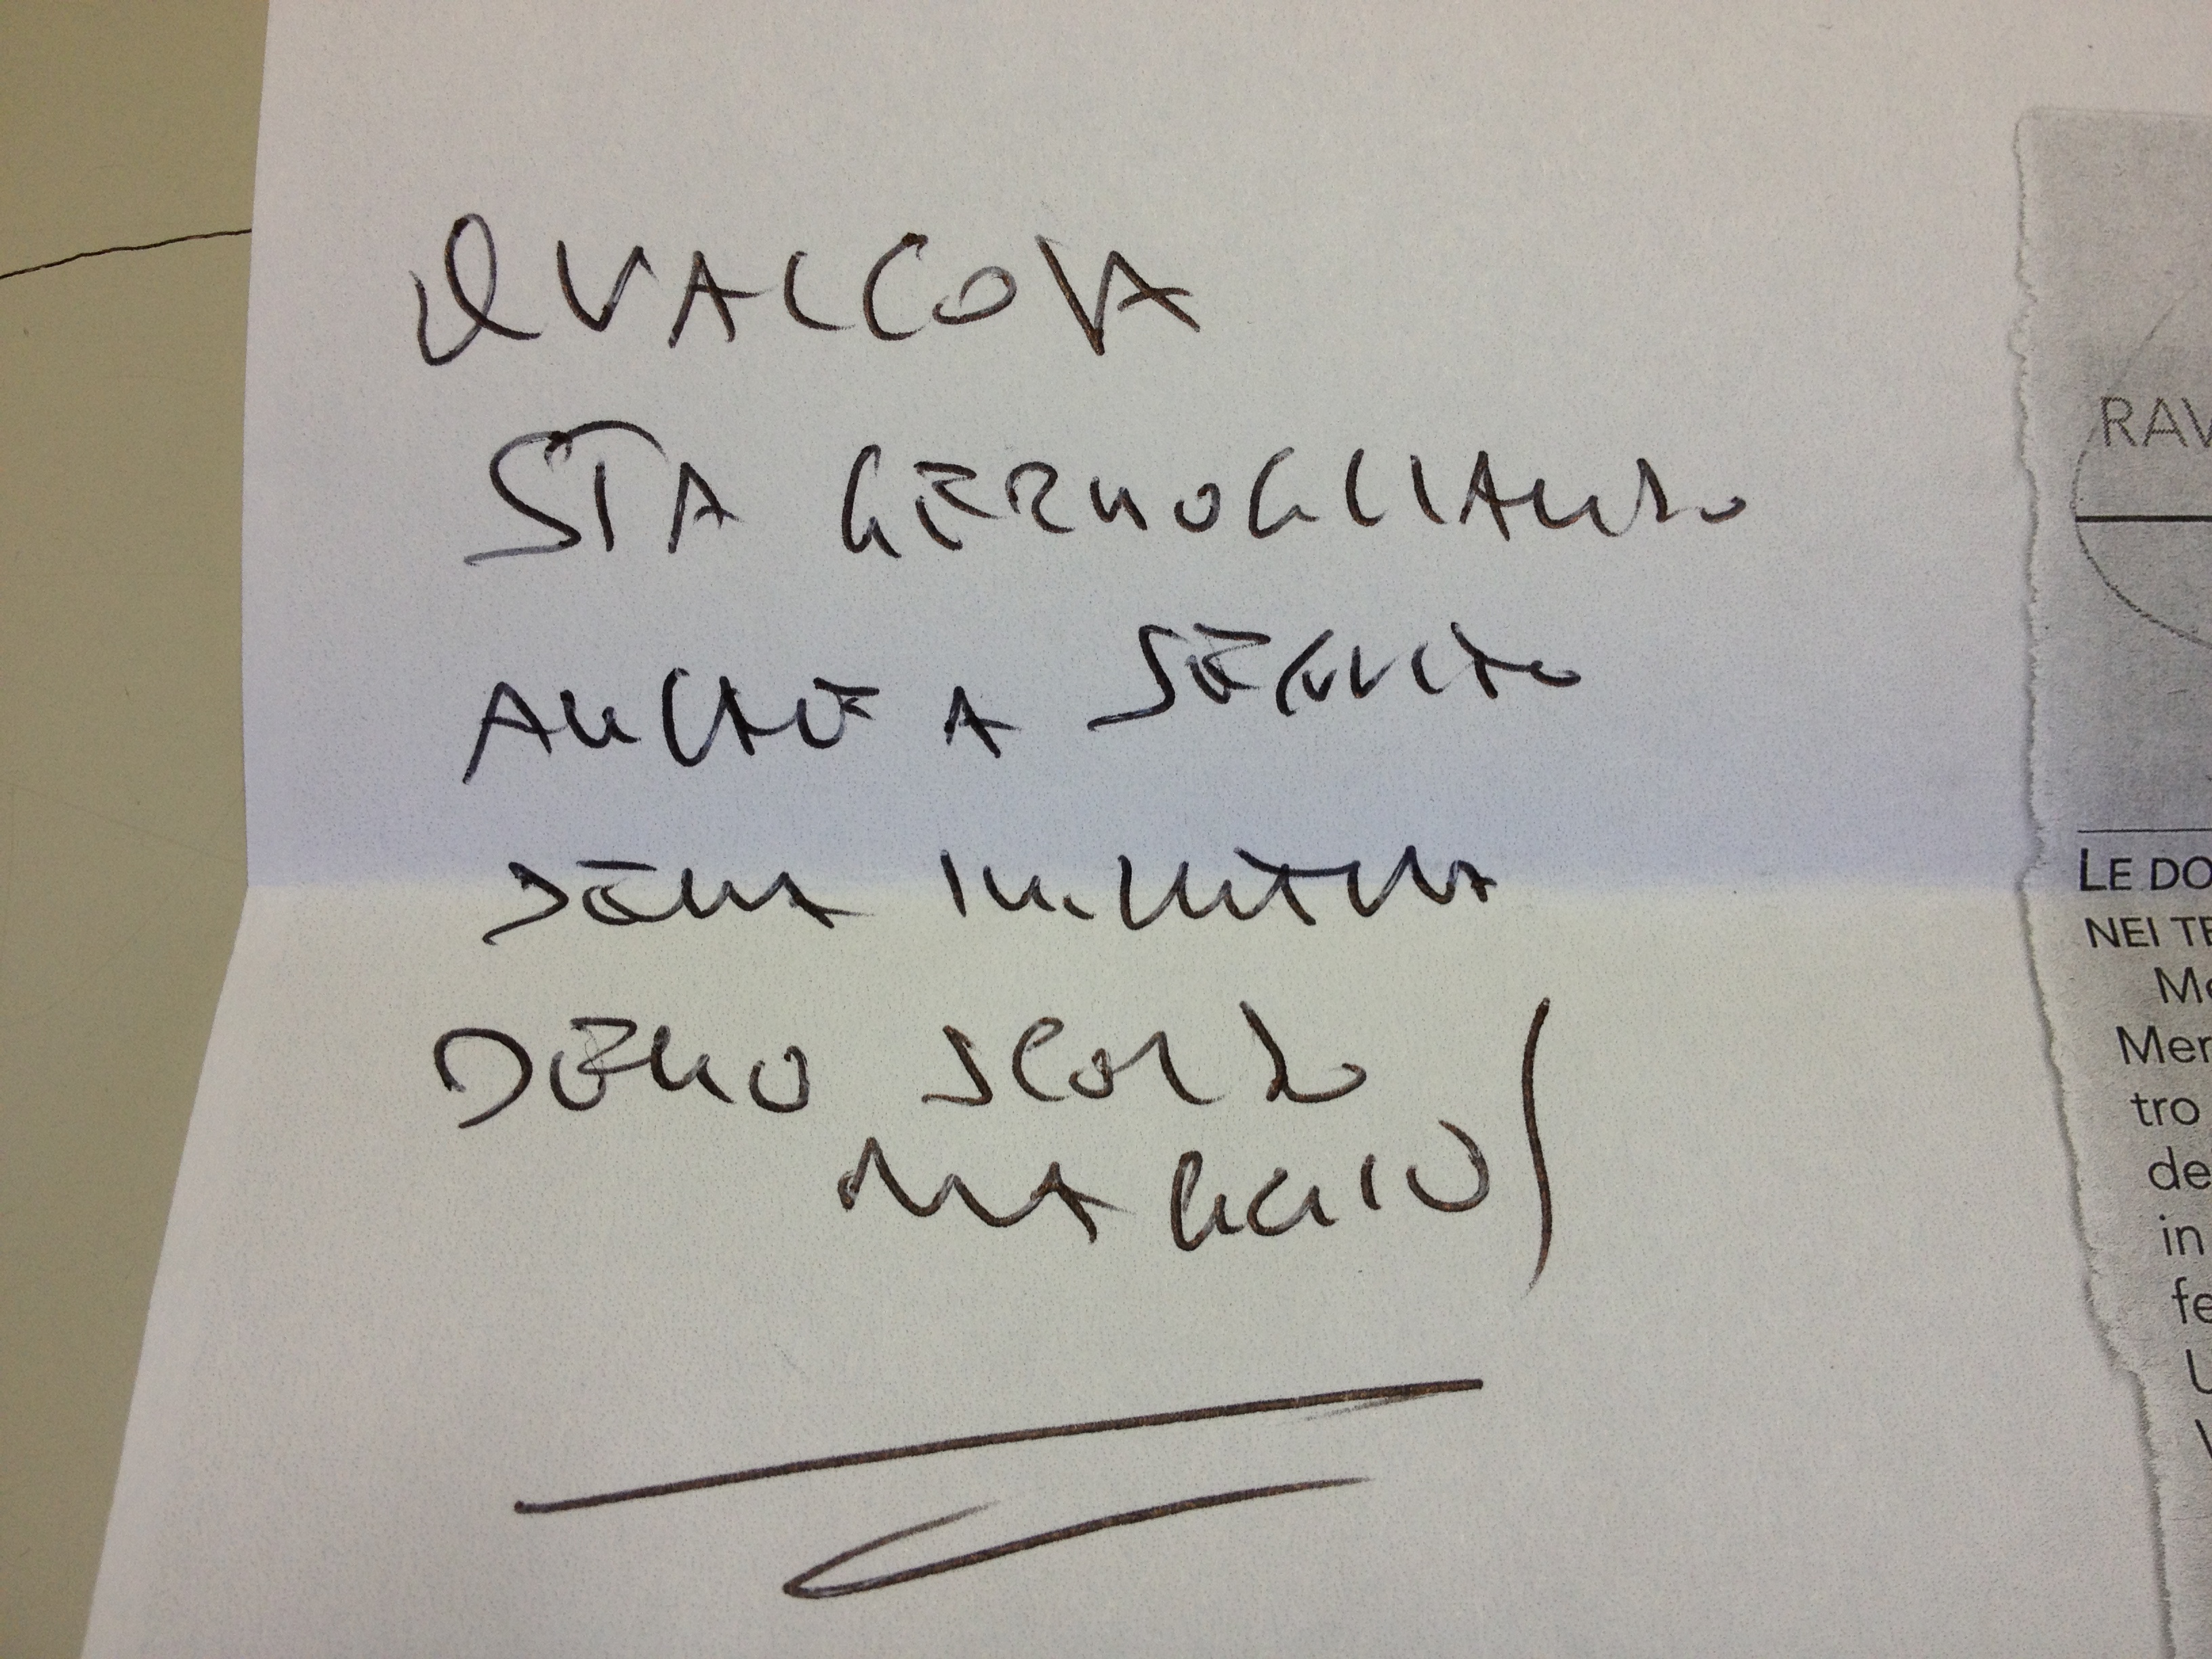 QUALCOSA
STA GERMOGLIANDO
ANCHE A SEGUITO
DELLA INIZIATIVA
DELLO SCORSO
MAGGIO
RAV
LE DO
NEI TE
Me
Mer
tro
de
in
fe
U